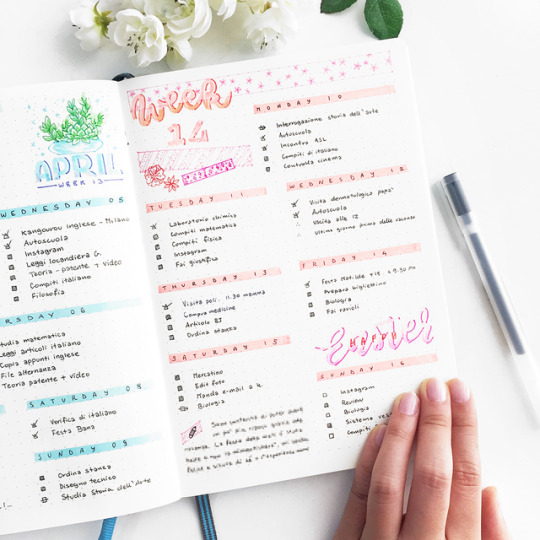 APRIL
WEEK 13
WEDNESDAY 05
Kangourou inglese - Milano
Autoscuola
Instagram
Leggi locandiera G.
Teoria - patente + video
Compiti italiano
Filosofia
RSDAY 06
tudia matematica
Leggi articoli italiano
Copia appunti inglese
File alternanza
Teoria patente + video
SATURDAY 08
Verifica di italiano
Festa Bana
SUNDAY 09
Ordina stanza
Disegno tecnico
Studia Storia dell'Arte
Week
14
MONDAY 10
Interrogazione storia dell'arte
Autoscuola
Incontro ASL
Compiti di italiano
cinema
TUESDAY 11
Laboratorio chimica
Compiti matematica
Compiti fisica
Instagram
Fai giustifica
WEDNESDAY 12
Visita dermatologica papa'
Autoscuola
Uscita alle 12
Ultimi giorno prima delle vacanze
THURSDAY 13
Visita poli. 11.30 mamma
Compra medicine
Articolo
Ordina stanza
FRIDAY 14
Festa Matilde +18
Prepara bigliettino
Biologia
Fai ravioli
SATURDAY 15
Mercatino
Edit foto
Manda e-mail a
Biologia
HAPPY
Easter
SUNDAY 16
Instagram
Review
Biologia
Sistema
Compiti